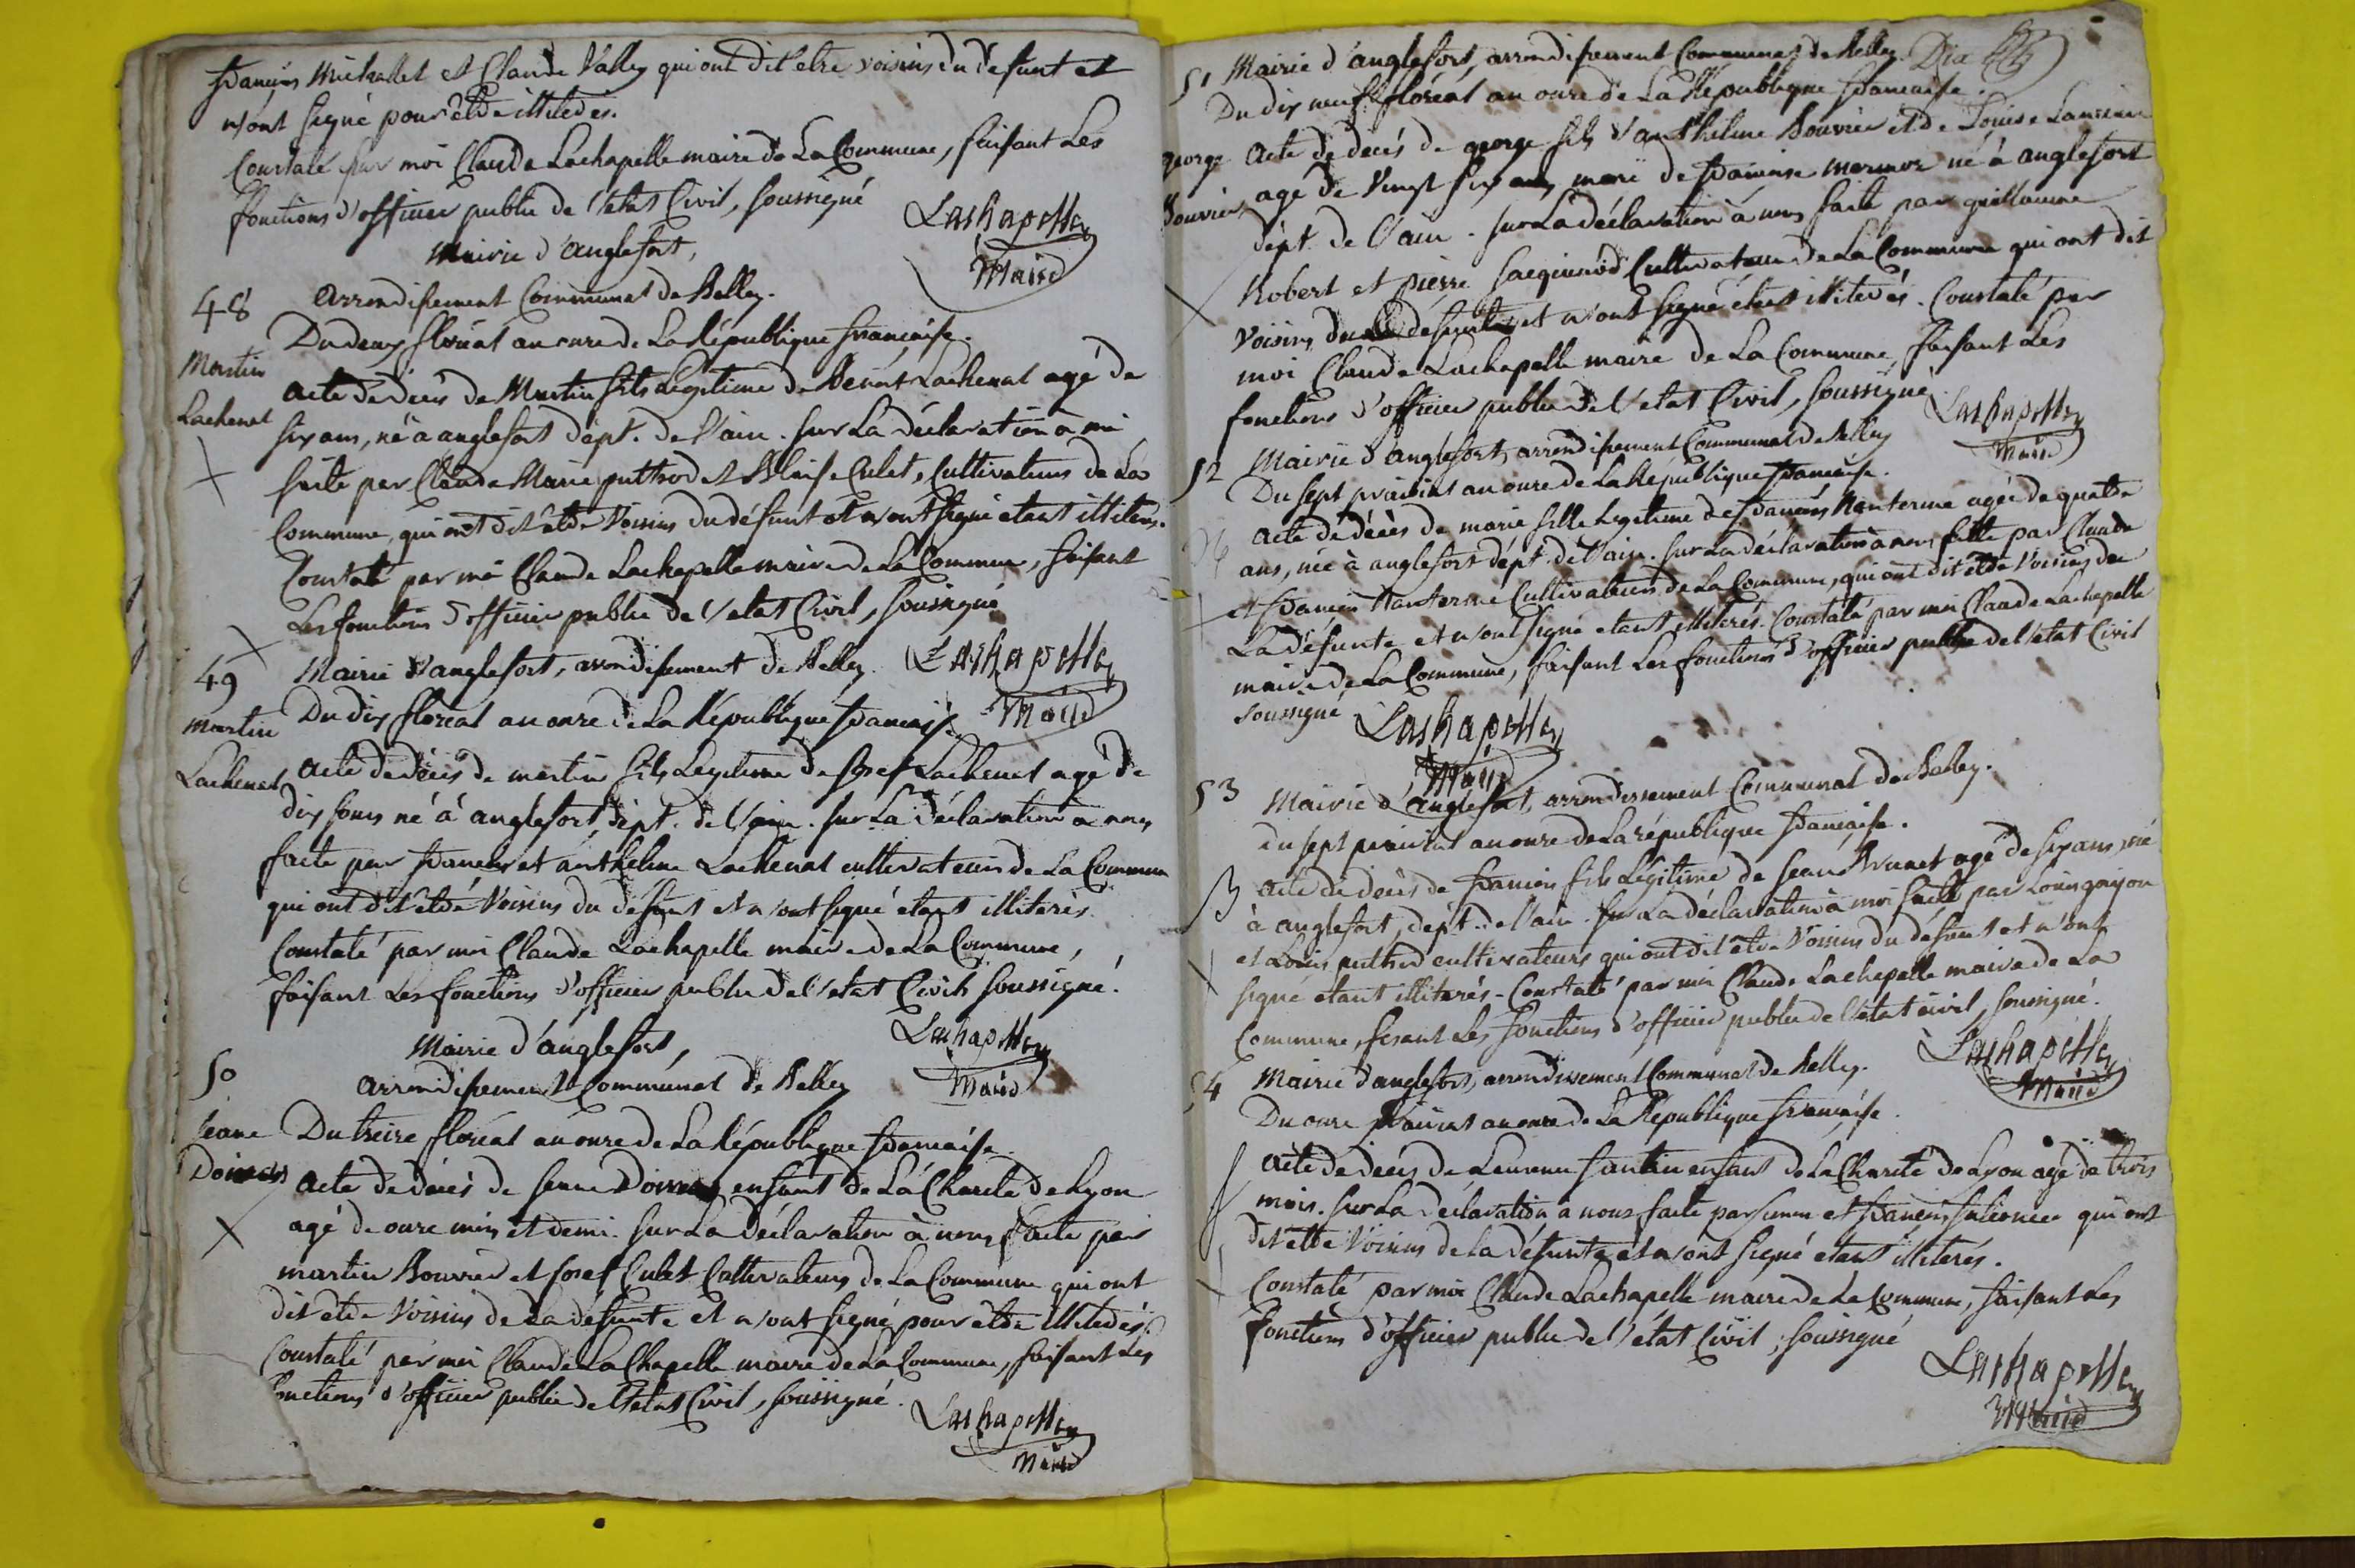 françois Michallet et Claude Vallez qui ont dit etre voisins du defunt et
n'ont signé pour etre illiteres.
Constaté par moi Claude Lachapelle maire de La Commune, faisant Les
fonctions d'officier public de l'etat Civil, soussigné
Lachapelle
Maire
Mairie d'anglefort,
48 arrondissement Communal de Belley.
Du deux floréal an onze de La République française.
Martin
Lachenal
acte de décès de Martin fils Légitime de Lachenal agé de
six ans, né à anglefort dépt. de l'ain. sur La déclaration à moi
faite par Claude Marie puthod et Blaise Culet, Cultivateurs de La
Commune, qui ont dit être Voisins du défunt et n'ont signé etant illiterés.
Constaté par moi Claude Lachapelle maire de La Commune, faisant
Les fonctions d'officier public de l'etat Civil, soussigné
Lachapelle
Maire
49 Mairie d'anglefort, arrondissement de Belley.
Du dix floréal an onze de La République française.
martin
Lachenal
acte de décès de martin fils Legitime de Josef Lachenal agé de
dix jours né à anglefort, dépt. de l'ain. sur La déclaration à nous
faite par francois et anthelme Lachenal cultivateurs de La Commune
qui ont dit etre Voisins du défunt et n'ont signé etant illiterés.
Constaté par moi Claude Lachapelle maire de La Commune,
faisant Les fonctions d'officier public de l'etat Civil, soussigné.
Lachapelle
Maire
Mairie d'anglefort,
50 arrondissement Communal de Belley
Du treize floréal an onze de La République francaise.
Jeane
acte de décès de Jeane enfant de La Charité de Lyon
agé de onze mois et demi. sur La déclaration à nous faite par
martin Bouvier et Josef Culet Cultivateurs de La Commune qui ont
dit etre Voisins de La défunte et n'ont signé pour etre illiterés.
Constaté par moi Claude La Chapelle maire de La Commune, faisant Les
fonctions d'officier public de l'etat Civil, soussigné.
Lachapelle
Maire
51 Mairie d'anglefort, arrondissement Communal de Belley.
Du dix neuf floréal an onze de La République francaise.
george
Bouvier
acte de décès de george fils d'anthelme Bouvier et de Louise
agé de Vingt six ans, marié de francoise né à anglefort
dépt. de l'ain. sur La déclaration à nous faite par guillaume
Robert et pierre Jacquinod Cultivateurs de La Commune qui ont dit
Voisins du défunt et n'ont signé étant illiterés. Constaté par
moi Claude Lachapelle maire de La Commune, faisant Les
fonctions d'officier public de l'etat Civil, soussigné
Lachapelle
Maire
52 Mairie d'anglefort, arrondissement Communal de Belley
Du sept prairial an onze de La République francaise.
acte de décès de marie fille Legitime de francois Nanterme agée de quatre
ans, née à anglefort dépt. de l'ain. sur La déclaration à nous faite par Claude
et francois Nanterme Cultivateurs de La Commune, qui ont dit etre Voisins de
La défunte et n'ont signé etant illiterés. Constaté par moi Claude Lachapelle
maire de La Commune, faisant Les fonctions d'officier public de l'etat Civil
soussigné
Lachapelle
Maire
53 Mairie d'anglefort, arrondissement Communal de Belley.
Du sept prairial an onze de La république francaise.
acte de décès de francois fils Légitime de Jean Brunet agé de six ans, né
à anglefort, dépt. de l'ain. sur La déclaration à moi faite par Louis gojon
et Louis puthod cultivateurs qui ont dit être Voisins du défunt et n'ont
signé etant illiterés. Constaté par moi Claude Lachapelle maire de La
Commune, fesant Les fonctions d'officier public de l'état civil, soussigné.
Lachapelle
Maire
54 Mairie d'anglefort, arrondissement Communal de Belley.
Du onze prairial an onze de La République française.
acte de décès de enfant de La Charité de Lyon agé de trois
mois. sur La déclaration à nous faite par et francois qui ont
dit etre Voisins de La défunte et n'ont signé etant illiterés.
Constaté par moi Claude Lachapelle maire de La Commune, faisant Les
fonctions d'officier public de l'état Civil, soussigné
Lachapelle
Maire